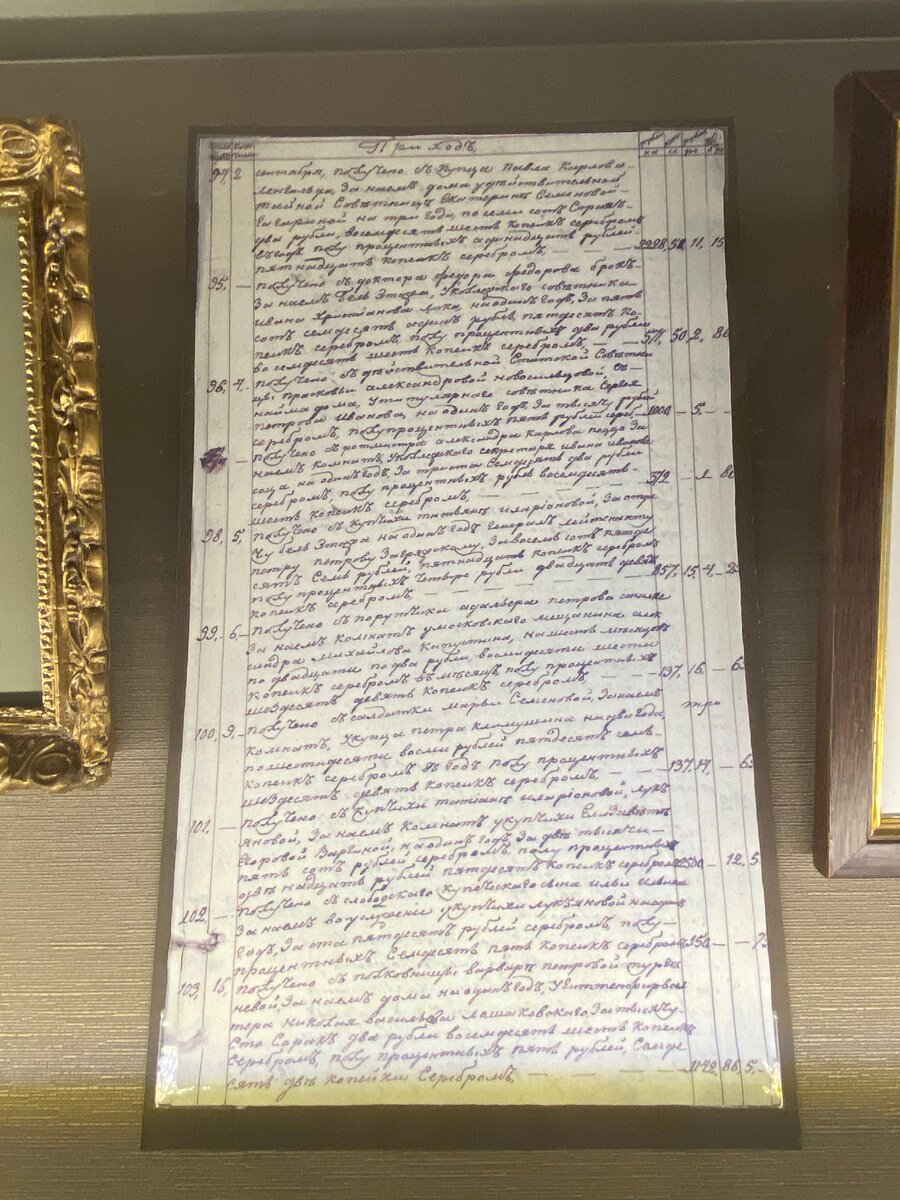 Приходъ
94, 2 сентября, получено съ купца Павла Карлова
Ленгольда, За наемъ дома у действительной
тайной Советницы Екатерины Семеновой
Гагариной на три года, по семи сотъ Сорокъ
два рубли, восемдесятъ шесть копеикъ серебромъ
въ годъ полу процентныхъ одинадцать рублей
пятнадцать копеикъ серебромъ, — — — 2228, 58, 11, 15
95, — получено съ доктора Федора Федорова Брокъ
За наемъ бель Этажа, у Колежского советника
Ивана Христианова на одинъ годъ, За пять
сотъ семдесятъ одинъ рубль, пятдесятъ ко
пеикъ серебромъ, полу процентныхъ два рубли
восемдесятъ шесть копеикъ серебромъ, — — 571, 50, 2, 86
96, 4, получено съ действительной Статской Советни
цы Прасковьи Александровой Новосильцовой, съ
найма дома, у титулярного советника Сергея
Петрова Иванова, на одинъ годъ, За тысячу рублей
серебромъ, полупроцентныхъ пять рублей сереб. 1000 — 5, —
— получено съ ротмистра Александра Карлова За
наемъ комнатъ, у Колежского секретаря Ивана Иванова
на одинъ годъ, За триста Семдесятъ два рубли
серебромъ, полу процентныхъ рубль восемдесятъ
шесть копеикъ серебромъ, — — — 372 — 1 86
98, 5, получено съ купчихи Татьяны Иларионовой, За
бель Этажа на одинъ годъ Генералъ Лейтенанту
Петру Петрову Загряскому, За восемь сотъ пятде
сятъ Семь рублей, пятнадцать копеикъ серебромъ
полу процентныхъ четыре рубли двадцать девять
копеикъ серебромъ, — — — 857, 15, 4, 29
99, 6 — получено съ порутчика Петрова
За наемъ комнатъ у московского мещанина Алек
сандра Михайлова Капустина, на шесть месяцовъ
по двадцати по два рубли, восемдесяти шести
копеикъ серебромъ въ месяцъ, полу процентныхъ
шездесятъ девять копеикъ серебромъ, — — 137, 16, — 69
100, 9, — получено съ салдатки Марьи Семеновой, За наемъ
комнатъ, у купца Петра на два года,
по шестидесяти восми рублей пятдесятъ семь
копеикъ серебромъ въ годъ полу процентныхъ
шездесятъ девять копеикъ серебромъ, — — 137, 14, — 69
101, — получено съ купчихи Татьяны Иларионовой, Лукъ
яновой, За наемъ комнатъ у купчихи Елизаветы
Егоровой Варгиной, на одинъ годъ, За две тысячи
пять сотъ рублей серебромъ полу процентныхъ
двенадцать рублей пятдесятъ копеикъ серебромъ 2500 — 12, 5
102, — получено съ слободского купеческого сына Ильи
За наемъ во услужение у купчихи Лукъяновой на одинъ
годъ, За сто пятдесятъ рублей серебромъ, полу
процентныхъ Семдесятъ пять копеикъ серебромъ 150 — — 7
103, 16, получено съ полковницы Варвары Петровой
невой, За наемъ дома на одинъ годъ, у Штентерферваль
тера Николая Васильева Лашаковского, За тысячу
Сто Сорокъ два рубли восемдесятъ шесть копеикъ
Серебромъ, полу процентныхъ пять рублей, Семде
сятъ две копейки Серебромъ, — — — 1142, 86, 5, —